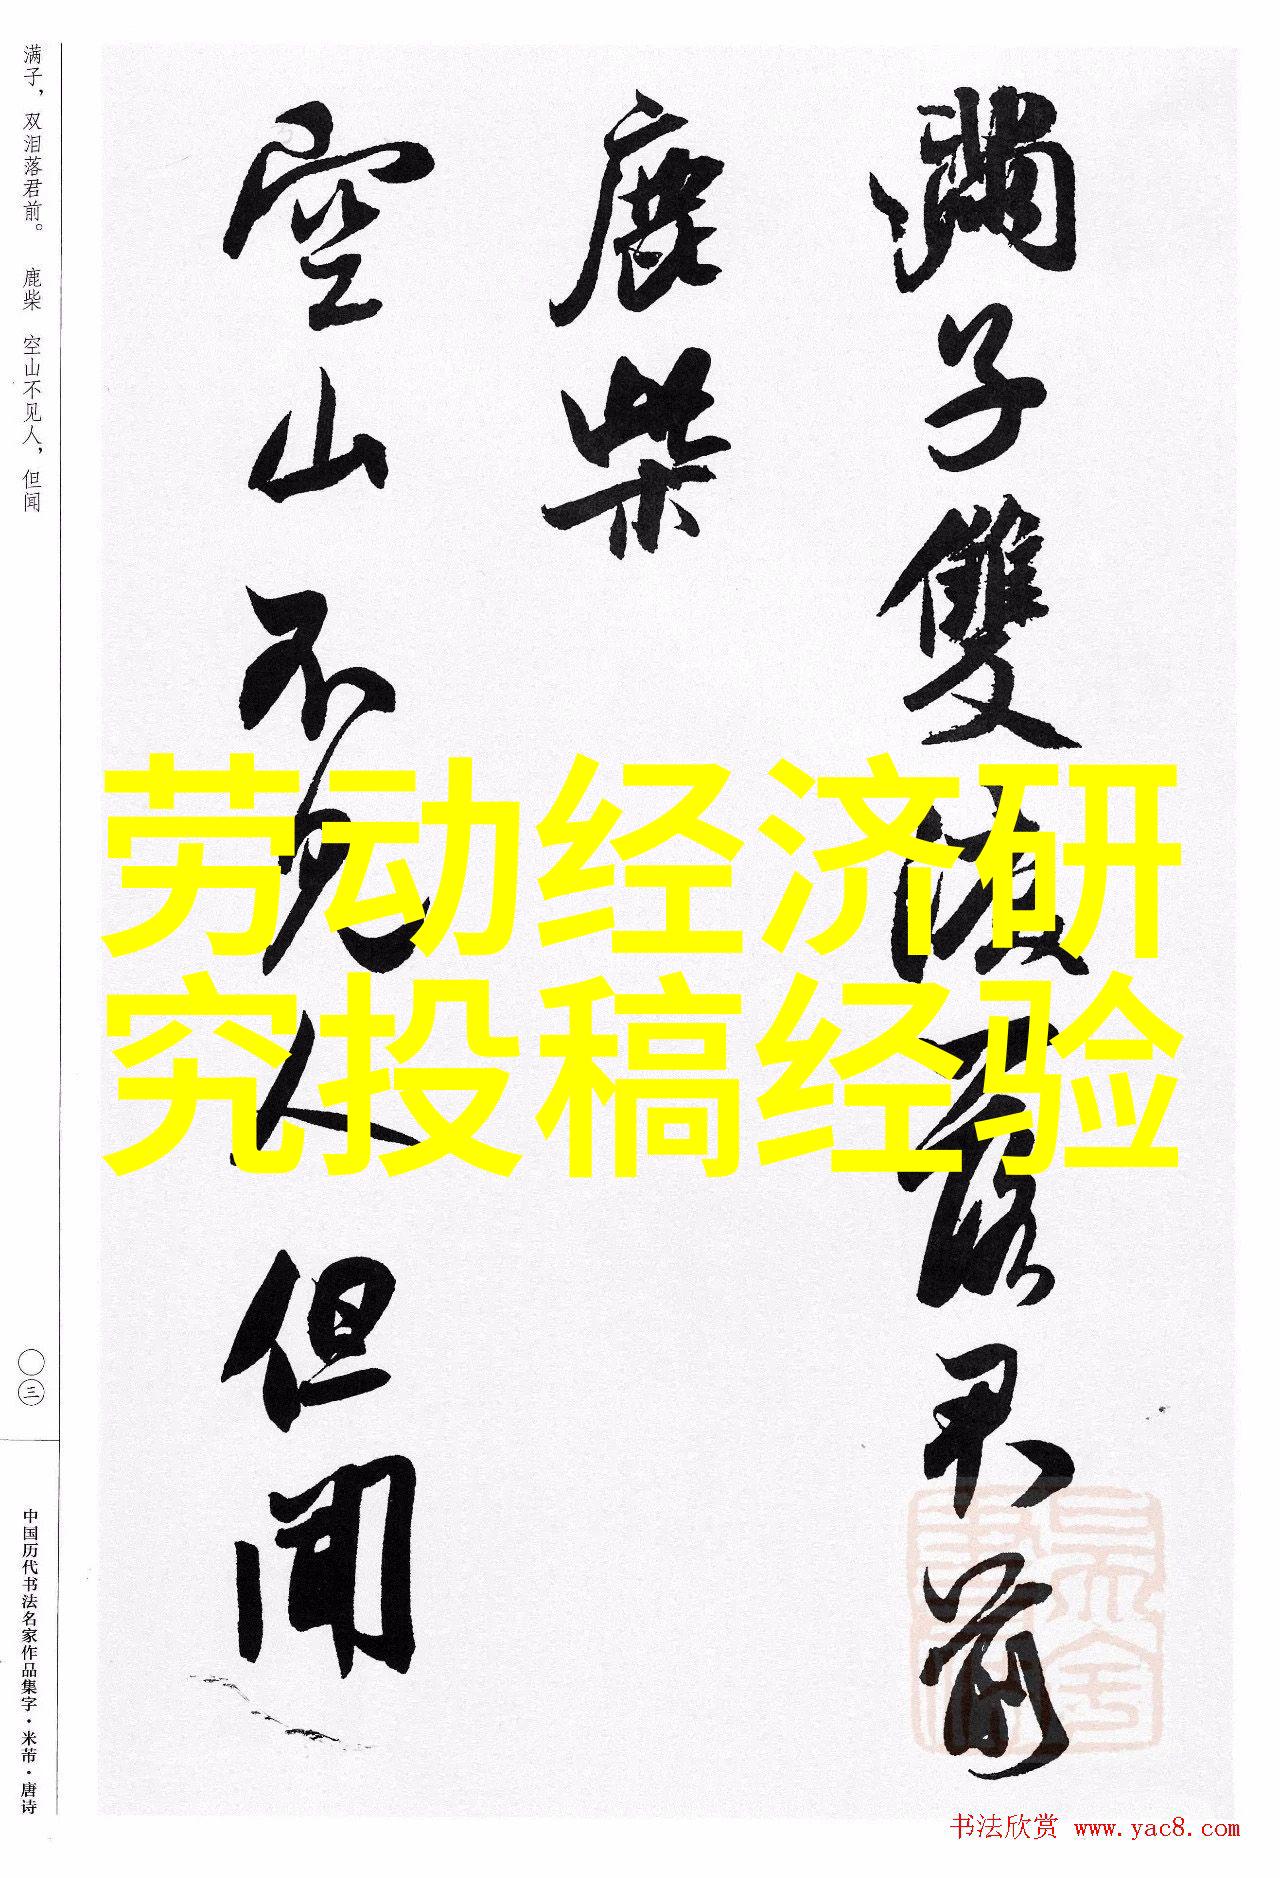 滿子雙淚落君前
鹿柴
空山不見人但聞
劳动经济研
究投稿经验
满子，双泪落君前。 鹿柴 空山不见人，但闻
〇三
中国历代书法名家作品集字·米芾·唐诗
书法欣赏 www.yac8.com